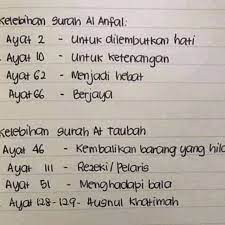 Kelebihan Surah Al Anfal:
Ayat 2 - Untuk dilembutkan hati
Ayat 10 - Untuk ketenangan
Ayat 62 - Menjadi hebat
Ayat 66 - Berjaya
Kelebihan Surah At Taubah
Ayat 46 - Kembalikan barang yang hila
Ayat 111 - Rezeki/Pelaris
Ayat 51 - Menghadapi bala
Ayat 128-129- Husnul Khatimah